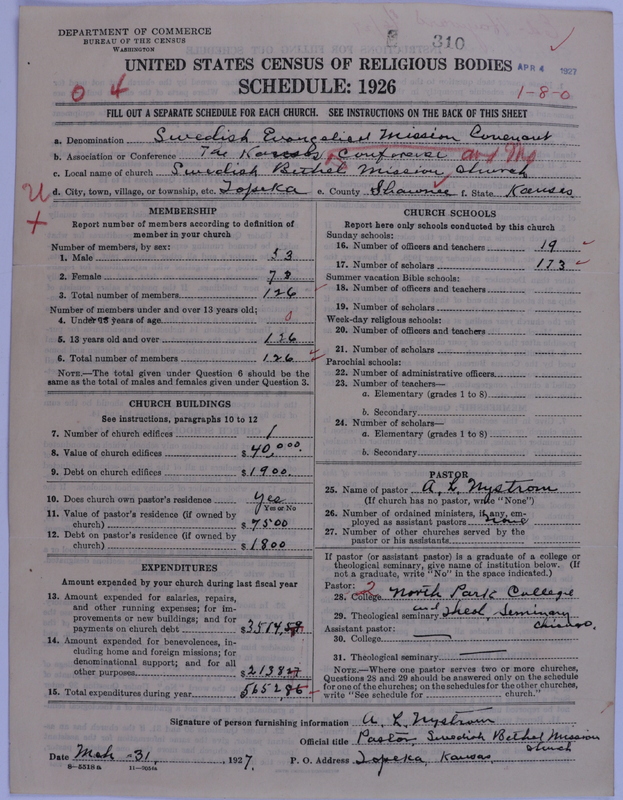 DEPARTMENT OF COMMERCE
BUREAU OF THE CENSUS
WASHINGTON
310
UNITED STATES CENSUS OF RELIGIOUS BODIES
APR 4 1927
SCHEDULE: 1926
0 4
1-8-0
FILL OUT A SEPARATE SCHEDULE FOR EACH CHURCH. SEE INSTRUCTIONS ON THE BACK OF THIS SHEET
a. Denomination Swedish Evangelical Mission Covenant
b. Association or Conference The Kansas Conference
c. Local name of church Swedish Bethel Mission Church
d. City, town, village, or township, etc. Topeka e. County Shawnee f. State Kansas
MEMBERSHIP
Report number of members according to definition of member in your church
Number of members, by sex:
1. Male 53
2. Female 73
3. Total number of members 126
Number of members under and over 13 years old;
4. Under 13 years of age 0
5. 13 years old and over 126
6. Total number of members 126
NOTE.—The total given under Question 6 should be the same as the total of males and females given under Question 3.
CHURCH BUILDINGS
See instructions, paragraphs 10 to 12
7. Number of church edifices 1
8. Value of church edifices $ 40,000.
9. Debt on church edifices $ 1900.
10. Does church own pastor's residence Yes
Yes or No
11. Value of pastor's residence (if owned by church) $ 7500
12. Debt on pastor's residence (if owned by church) $ 1800
EXPENDITURES
Amount expended by your church during last fiscal year
13. Amount expended for salaries, repairs, and other running expenses; for improvements or new buildings; and for payments on church debt $ 3514
14. Amount expended for benevolences, including home and foreign missions; for denominational support; and for all other purposes $ 2138
15. Total expenditures during year 5652
CHURCH SCHOOLS
Report here only schools conducted by this church
Sunday schools:
16. Number of officers and teachers 19
17. Number of scholars 173
Summer vacation Bible schools:
18. Number of officers and teachers
19. Number of scholars
Week-day religious schools:
20. Number of officers and teachers
21. Number of scholars
Parochial schools:
22. Number of administrative officers
23. Number of teachers—
a. Elementary (grades 1 to 8)
b. Secondary
24. Number of scholars—
a. Elementary (grades 1 to 8)
b. Secondary
PASTOR
25. Name of pastor A. L. Nystrom
(If church has no pastor, write "None")
26. Number of ordained ministers, if any, employed as assistant pastors none
27. Number of other churches served by the pastor or his assistants
If pastor (or assistant pastor) is a graduate of a college or theological seminary, give name of institution below. (If not a graduate, write "No" in the space indicated.)
Pastor: 2
28. College North Park College
29. Theological seminary and Theol. Seminary Chicago.
Assistant pastor:
30. College
31. Theological seminary
NOTE.—Where one pastor serves two or more churches, Questions 28 and 29 should be answered only on the schedule for one of the churches; on the schedules for the other churches, write "See schedule for church."
Signature of person furnishing information A. L. Nystrom
Official title Pastor, Swedish Bethel Mission Church
Date Mch -31, 1927. P. O. Address Topeka, Kansas.
8-5518a 11-9054a